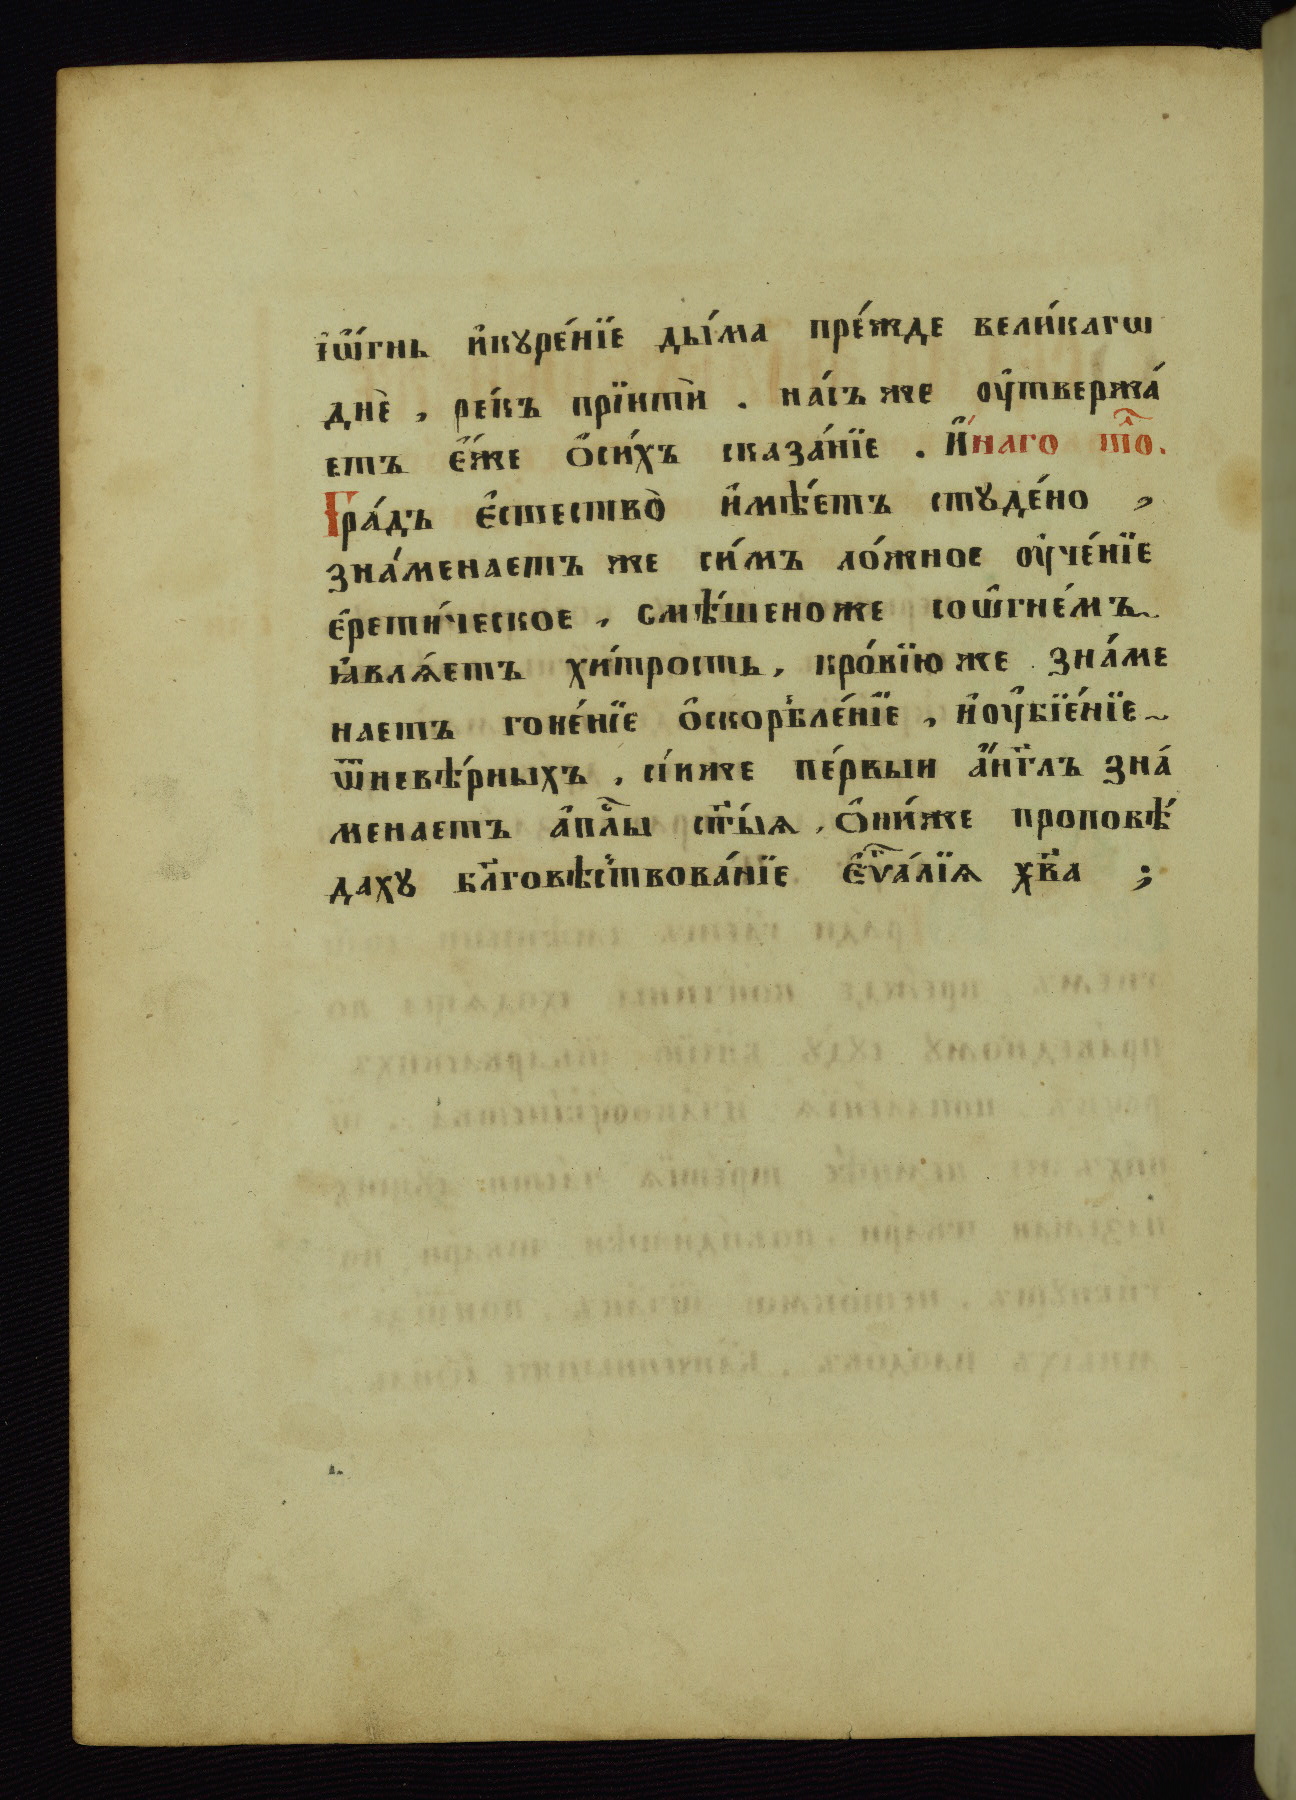 іѡ҆́гнь и҆курє́нїе ды́ма пре́жде вели́кагѡ
днѐ , ре́къ прїитѝ . на́съ же ᲂу҆твержа́
етъ є҆́же ѻ҆си́хъ сказа́нїе . И҆́наго то̑.
Гра́дъ є҆стество̀ и҆мѣ́етъ студе́но ,
зна́менаетъ же си́мъ ло́жное ᲂу҆че́нїе
є҆рети́ческое , смѣ́шеноже соѡ҆гне́мъ
ꙗ҆влѧ́етъ хи́трость , кро́вїю же зна́ме
наетъ гоне́нїе ѻ҆скорбле́нїе , и҆ᲂу҆бїе́нїе
ѿневѣ́рныхъ . сі́иже пе́рвыи а҆́нг҃лъ зна́
менаетъ а҆пⷭ҇лы ст҃ы́ѧ , ѻ҆ни́же проповѣ́
даху бл҃говѣⷭ҇твова́нїе є҆ѵⷢ҇а́лїѧ хв҃а ;